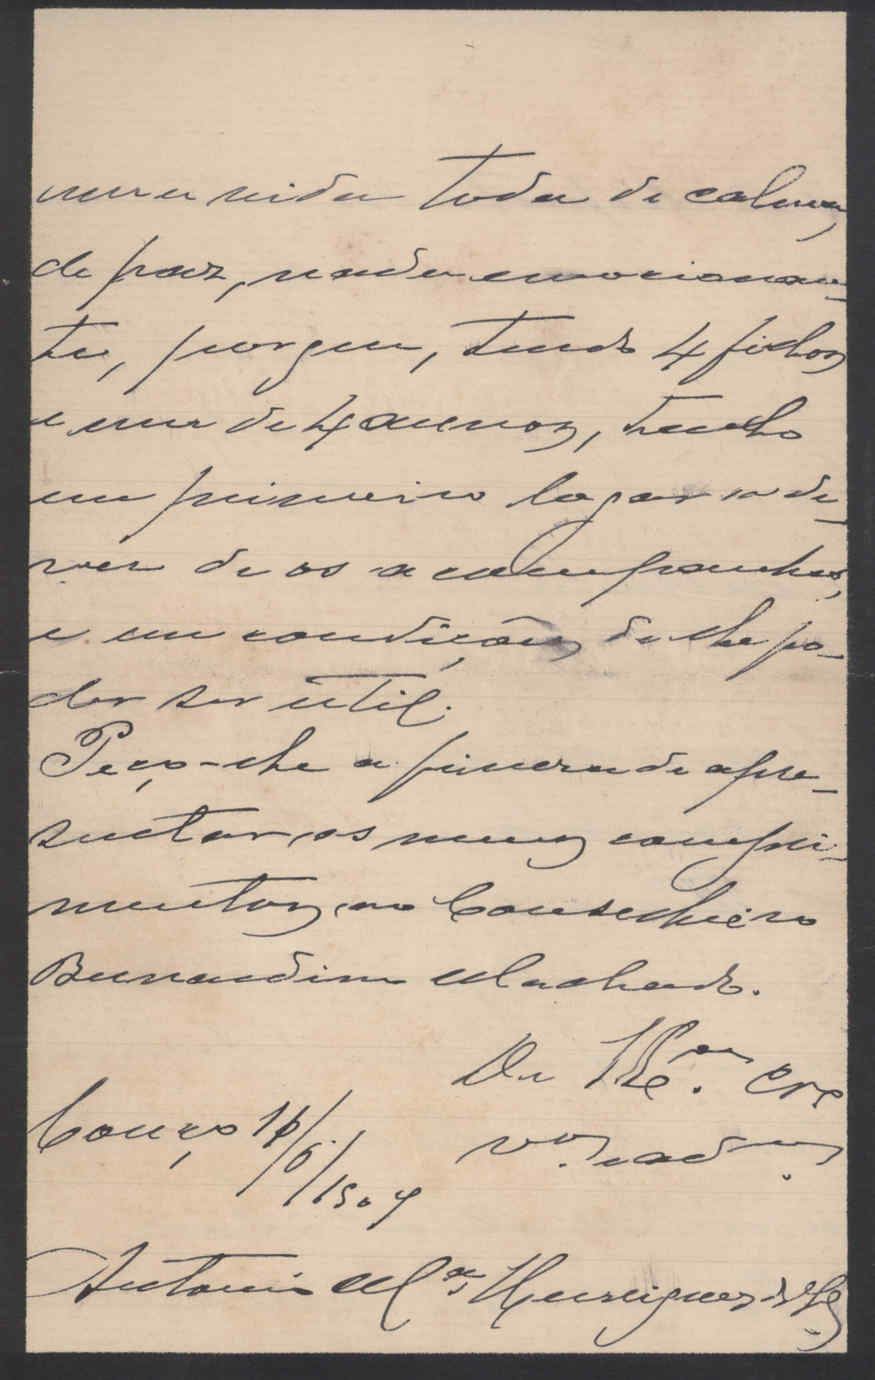 uma vida toda de calma,
de paz, nada emocionan-
te, porque, tendo 4 filhos
e um de 4 annos, tenho
em primeiro logar o de-
ver de os acompanhar,
e em condições de lhe po-
der ser util.
Peço-lhe a fineza de apre-
sentar os meus compri-
mentos ao Conselheiro
Bernardino Machado.
De V. Ex.ª
Couço 16/6/1907
Antonio M.
Henriques da